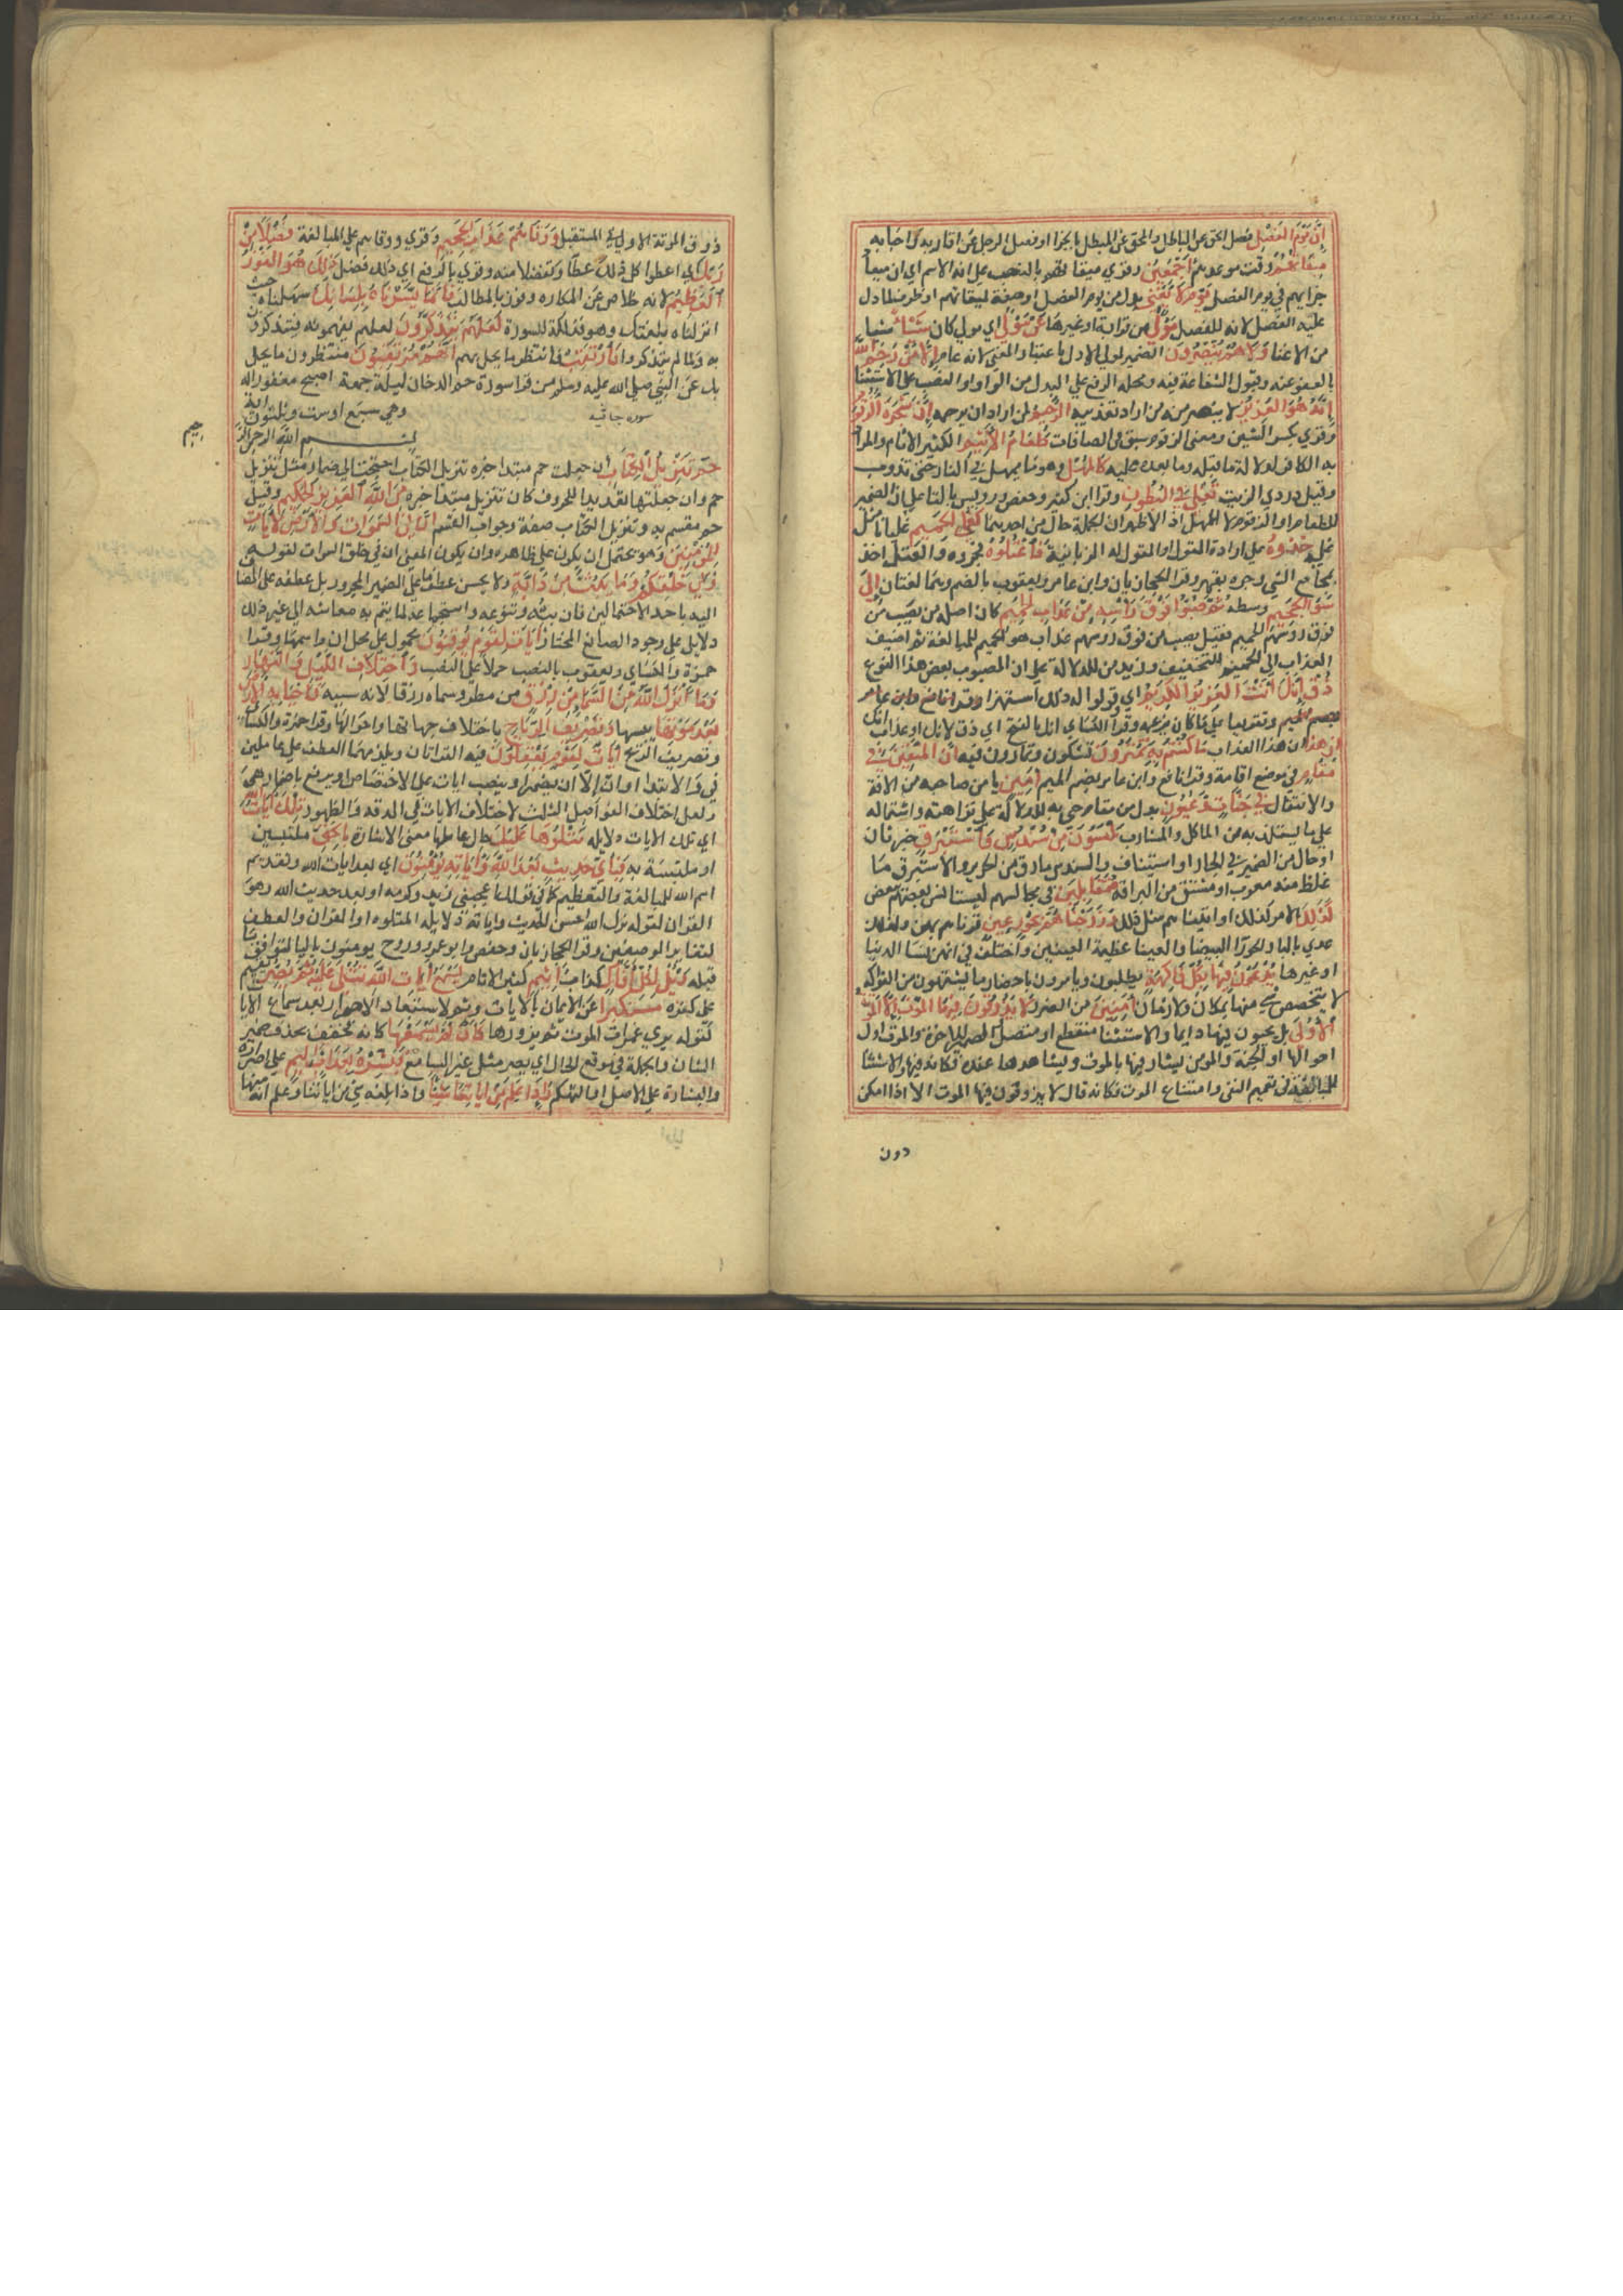 إن يوم الفصل فصل الحق عن الباطل والمحق عن المبطل بالجزا او فصل الرجل عن اقاربه واحبابه
ميقاتهم وقت موعدهم اجمعين وقري ميقاتهم بالنصب على انه الاسم اي ان ميعاد
جزايهم في يوم الفصل يوم لا يغني بدل من يوم الفصل او صفة لميقاتهم او ظرف لما دل
عليه الفصل لا له للفصل مولى من قرابة او غيرها عن مولى اي مولى كان شيئا شيا
من الاغنا ولا هم ينصرون الضمير لمولى الاول باعتبار المعنى لانه عام إلا من رحم الله
بالعفو عنه وقبول الشفاعة فيه ومحله الرفع على البدل من الواو او النصب على الاستثنا
إنه هو العزيز لا ينصر منه من اراد تعذيبه الرحيم لمن اراد ان يرحمه إن شجرة الزقوم
وقري بكسر الشين ومعنى الزقوم سبق في الصافات طعام الأثيم الكثير الاثام والمراد
به الكافر لدلالة ما قبله وما بعده عليه كالمهل وهو ما يمهل في النار حتى تذوب
وقيل دردي الزيت تغلي في البطون وقرا ابن كثير وحفص ورويس باليا على ان الضمير
للطعام او الزقوم لا للمهل اذ الاظهر ان الجملة حال من احدهما كغلي الحميم غليانا مثل
غليه خذوه على ارادة القول والمقول له الزبانية فاعتلوه فجروه والعتل اخذ
بمجامع الشي وجره بقهر وقرا الحجازيان وابن عامر ويعقوب بالضم وهما لغتان إلى
سوا الجحيم وسطه ثم صبوا فوق رأسه من عذاب الحميم كان اصله من يصب من
فوق رؤسهم الحميم فقيل يصب من فوق رؤسهم عذاب هو الحميم للمبالغة ثم اضيف
العذاب الى الحميم للتخفيف وزيد من للدلالة على ان المصبوب بعض هذا النوع
ذق إنك أنت العزيز الكريم اي وقولوا له ذلك استهزا وقرا نافع وابن عامر
وتقريعا على ما كان يزعمه وقرا الكساي انك بالفتح اي ذق لانك او عذاب انك
إن هذا ان هذا العذاب ما كنتم به تمترون تشكون وتمارون فيه إن المتقين في
مقام في موضع اقامة وقرا نافع وابن عامر بضم الميم أمين يامن صاحبه من الافة
والانتقال في جنات وعيون بدل من مقام جي به للدلالة على نزاهته واشتماله
على ما يستلذ به من الماكل والمشارب يلبسون من سندس وإستبرق خبر ثان
او حال من الضمير في الجار او استيناف والسندس ما رق من الحرير والاستبرق ما
غلظ منه معرب او مشتق من البراقة متقابلين في مجالسهم ليستانس بعضهم ببعض
كذلك الامر كذلك او اتيناهم مثل ذلك وزوجناهم بحور عين قرناهم بهن ولذلك
عدي بالبا والحورا البيضا والعينا عظيمة العينين واختلف في انهن نسا الدنيا
او غيرها يدعون فيها بكل فاكهة يطلبون ويامرون باحضار ما يشتهون من الفواكه
لا يتخصص شي منها بمكان ولا زمان آمنين من الضرر لا يذوقون فيها الموت إلا الموتة
الأولى بل يحيون فيها دايما والاستثنا منقطع او متصل والضمير للاخرة والموت اول
احوالها او للجنة والمومن يشارفها بالموت ويشاهدها عنده فكانه فيها والاستثنا
للمبالغة في تعميم النفي وامتناع الموت فكانه قال لا يذوقون فيها الموت الا اذا امكن
دون
ذوق الموتة الاولى في المستقبل ووقاهم عذاب الجحيم وقري ووقاهم على المبالغة فضلا من
ربك اي اعطوا كل ذلك عطا وتفضلا منه وقري بالرفع اي ذلك فضل ذلك هو الفوز
العظيم لانه خلاص عن المكاره وفوز بالمطالب فإنما يسرناه بلسانك سهلناه حيث
انزلناه بلغتك وهو فذلكة للسورة لعلهم يتذكرون لعلهم يفهمونه فيتذكرون
به ولما لم يتذكروا فارتقب فانتظر ما يحل بهم إنهم مرتقبون منتظرون ما يحل
بك عن النبي صلى الله عليه وسلم من قرا سورة حم الدخان ليلة جمعة اصبح مغفورا له
سورة جاثيه
وهي سبع او ست وثلثون اية
بسم الله الرحمن الرحيم
حم تنزيل الكتاب ان جعلت حم مبتدا خبره تنزيل الكتاب احتجت الى اضمار مثل تنزيل
حم وان جعلتها تعديدا للحروف كان تنزيل مبتدا خبره من الله العزيز الحكيم وقيل
حم مقسم به وتنزيل الكتاب صفة وجواب القسم إن في السموات والأرض لآيات
للمؤمنين وهو يحتمل ان يكون على ظاهره وان يكون المعنى ان في خلق السموات لقوله
وفي خلقكم وما يبث من دابة ولا يحسن عطف ما على الضمير المجرور بل عطفه على المضاف
اليه باحد الاحتمالين فان بثه وتنوعه واستجماعه لما يتم به معاشه الى غير ذلك
دلايل على وجود الصانع المختار آيات لقوم يوقنون محمول على محل ان واسمها وقرا
حمزة والكساي ويعقوب بالنصب حملا على النصب واختلاف الليل والنهار
وما أنزل الله من السماء من رزق من مطر وسماه رزقا لانه سببه فأحيا به الأرض
بعد موتها يبسها وتصريف الرياح باختلاف جهاتها واحوالها وقرا حمزة والكساي
وتصريف الريح آيات لقوم يعقلون فيه القراتان ويلزمهما العطف على عاملين
في والابتدا او ان الا ان يضمر في او ينصب ايات على الاختصاص او يرفع باضمار هي
ولعل اختلاف الفواصل الثلث لاختلاف الايات في الدقة والظهور تلك آيات الله
اي تلك الايات دلايله نتلوها عليك حال عاملها معنى الاشارة بالحق ملتبسين
او ملتبسة به فبأي حديث بعد الله وآياته يؤمنون اي بعد ايات الله وتقديم
اسم الله للمبالغة والتعظيم كما في قولك اعجبني زيد وكرمه او بعد حديث الله وهو
القران لقوله نزل الله احسن الحديث واياته دلايله المتلوة او القران والعطف
لتغاير الوصفين وقرا الحجازيان وحفص وابو عمرو وروح يومنون باليا ليوافق ما
قبله ويل لكل أفاك كذاب أثيم كثير الاثام يسمع آيات الله تتلى عليه ثم يصر يقيم
على كفره مستكبرا عن الايمان بالايات وثم لاستبعاد الاصرار بعد سماع الايات
كقوله يرى غمرات الموت ثم يزورها كأن لم يسمعها كانه فخفف وحذف ضمير
الشان والجملة في موقع الحال اي يصر مثل غير السامع فبشره بعذاب أليم على اصراره
والبشارة على الاصل او التهكم وإذا علم من آياتنا شيئا واذا بلغه شي من اياتنا وعلم انه منها